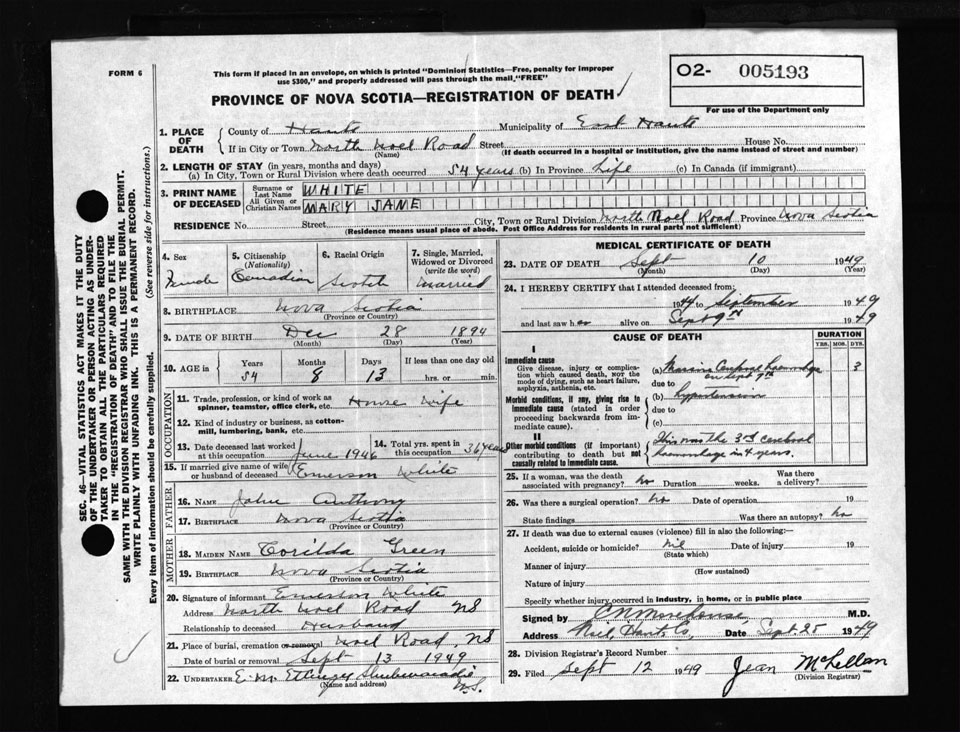 FORM 6
This form if placed in an envelope, on which is printed "Dominion Statistics—Free, penalty for improper
use $300," and properly addressed will pass through the mail, "FREE"
PROVINCE OF NOVA SCOTIA—REGISTRATION OF DEATH
O2- 005193
For use of the Department only
1. PLACE OF DEATH
County of Hants Municipality of East Hants
If in City or Town North Noel Road Street House No.
(Name) (If death occurred in a hospital or institution, give the name instead of street and number)
2. LENGTH OF STAY (in years, months and days)
(a) In City, Town or Rural Division where death occurred 54 years (b) In Province Life (c) In Canada (if immigrant)
3. PRINT NAME OF DECEASED
Surname or Last Name WHITE
All Given or Christian Names MARY JANE
RESIDENCE No. Street City, Town or Rural Division North Noel Road Province Nova Scotia
(Residence means usual place of abode. Post Office Address for residents in rural parts not sufficient)
4. Sex Female
5. Citizenship (Nationality) Canadian
6. Racial Origin Scotch
7. Single, Married, Widowed or Divorced (write the word) Married
8. BIRTHPLACE Nova Scotia
(Province or Country)
9. DATE OF BIRTH Dec 28 1894
(Month) (Day) (Year)
10. AGE in Years Months Days If less than one day old
54 8 13 hrs. or min.
OCCUPATION
11. Trade, profession, or kind of work as spinner, teamster, office clerk, etc. House wife
12. Kind of industry or business, as cotton-mill, lumbering, bank, etc.
13. Date deceased last worked at this occupation June 1946
14. Total yrs. spent in this occupation 36 years
15. If married give name of wife or husband of deceased Emerson White
FATHER
16. NAME John Anthony
17. BIRTHPLACE Nova Scotia
(Province or Country)
MOTHER
18. MAIDEN NAME Torilda Green
19. BIRTHPLACE Nova Scotia
(Province or Country)
20. Signature of informant Emerson White
Address North Noel Road NS
Relationship to deceased Husband
21. Place of burial, cremation or removal Noel Road, NS
Date of burial or removal Sept 13 1949
22. UNDERTAKER E. M. Ettinger Shubenacadie N.S.
(Name and address)
MEDICAL CERTIFICATE OF DEATH
23. DATE OF DEATH Sept 10 1949
(Month) (Day) (Year)
24. I HEREBY CERTIFY that I attended deceased from:
1944 to September 1949
and last saw her alive on Sept 9th 1949
CAUSE OF DEATH DURATION
YRS. MOS. DYS.
I
Immediate cause
Give disease, injury or complication which caused death, NOT the mode of dying, such as heart failure, asphyxia, asthenia, etc.
(a) Massive Cerebral haemorrhage 3
on Sept 7th
due to
Morbid conditions, if any, giving rise to immediate cause (stated in order proceeding backwards from immediate cause).
(b) hypertension
due to
(c)
II
Other morbid conditions (if important) contributing to death but not causally related to immediate cause.
This was the 3rd cerebral
haemorrhage in 4 years.
25. If a woman, was the death associated with pregnancy? no Duration weeks. Was there a delivery?
26. Was there a surgical operation? no Date of operation 19
State findings Was there an autopsy? no
27. If death was due to external causes (violence) fill in also the following:—
Accident, suicide or homicide? nil Date of injury 19
(State which)
Manner of injury
(How sustained)
Nature of injury
Specify whether injury occurred in industry, in home, or in public place
Signed by C N Morehouse, M.D.
Address Hants Co, Date Sept. 25 1949
28. Division Registrar's Record Number
29. Filed Sept 12 1949 Jean McLellan
(Division Registrar)
SEC. 46—VITAL STATISTICS ACT MAKES IT THE DUTY
OF THE UNDERTAKER OR PERSON ACTING AS UNDER-
TAKER TO OBTAIN ALL THE PARTICULARS REQUIRED
IN THE "REGISTRATION OF DEATH" AND TO FILE THE
SAME WITH THE DIVISION REGISTRAR WHO SHALL ISSUE THE BURIAL PERMIT.
WRITE PLAINLY WITH UNFADING INK. THIS IS A PERMANENT RECORD.
Every item of information should be carefully supplied. (See reverse side for instructions.)